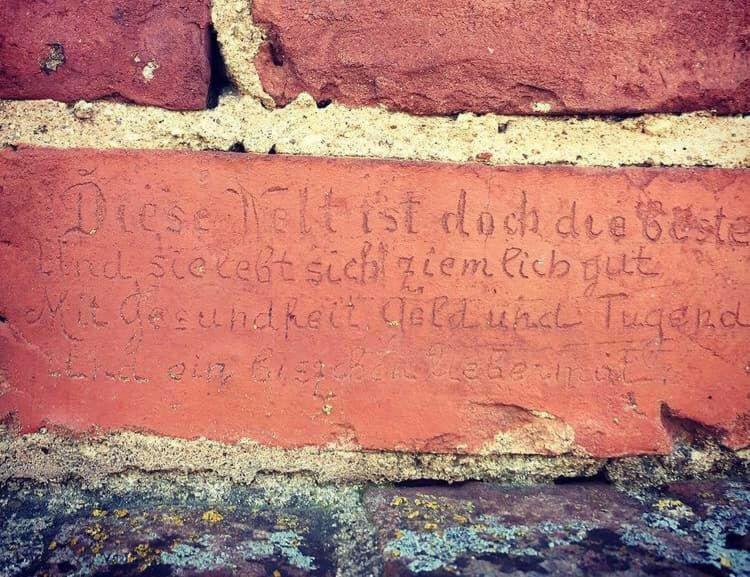 Diese Welt ist doch die beste
Und sie lebt sich ziemlich gut
Mit Gesundheit, Geld und Tugend
Und ein bisschen Liebermut.